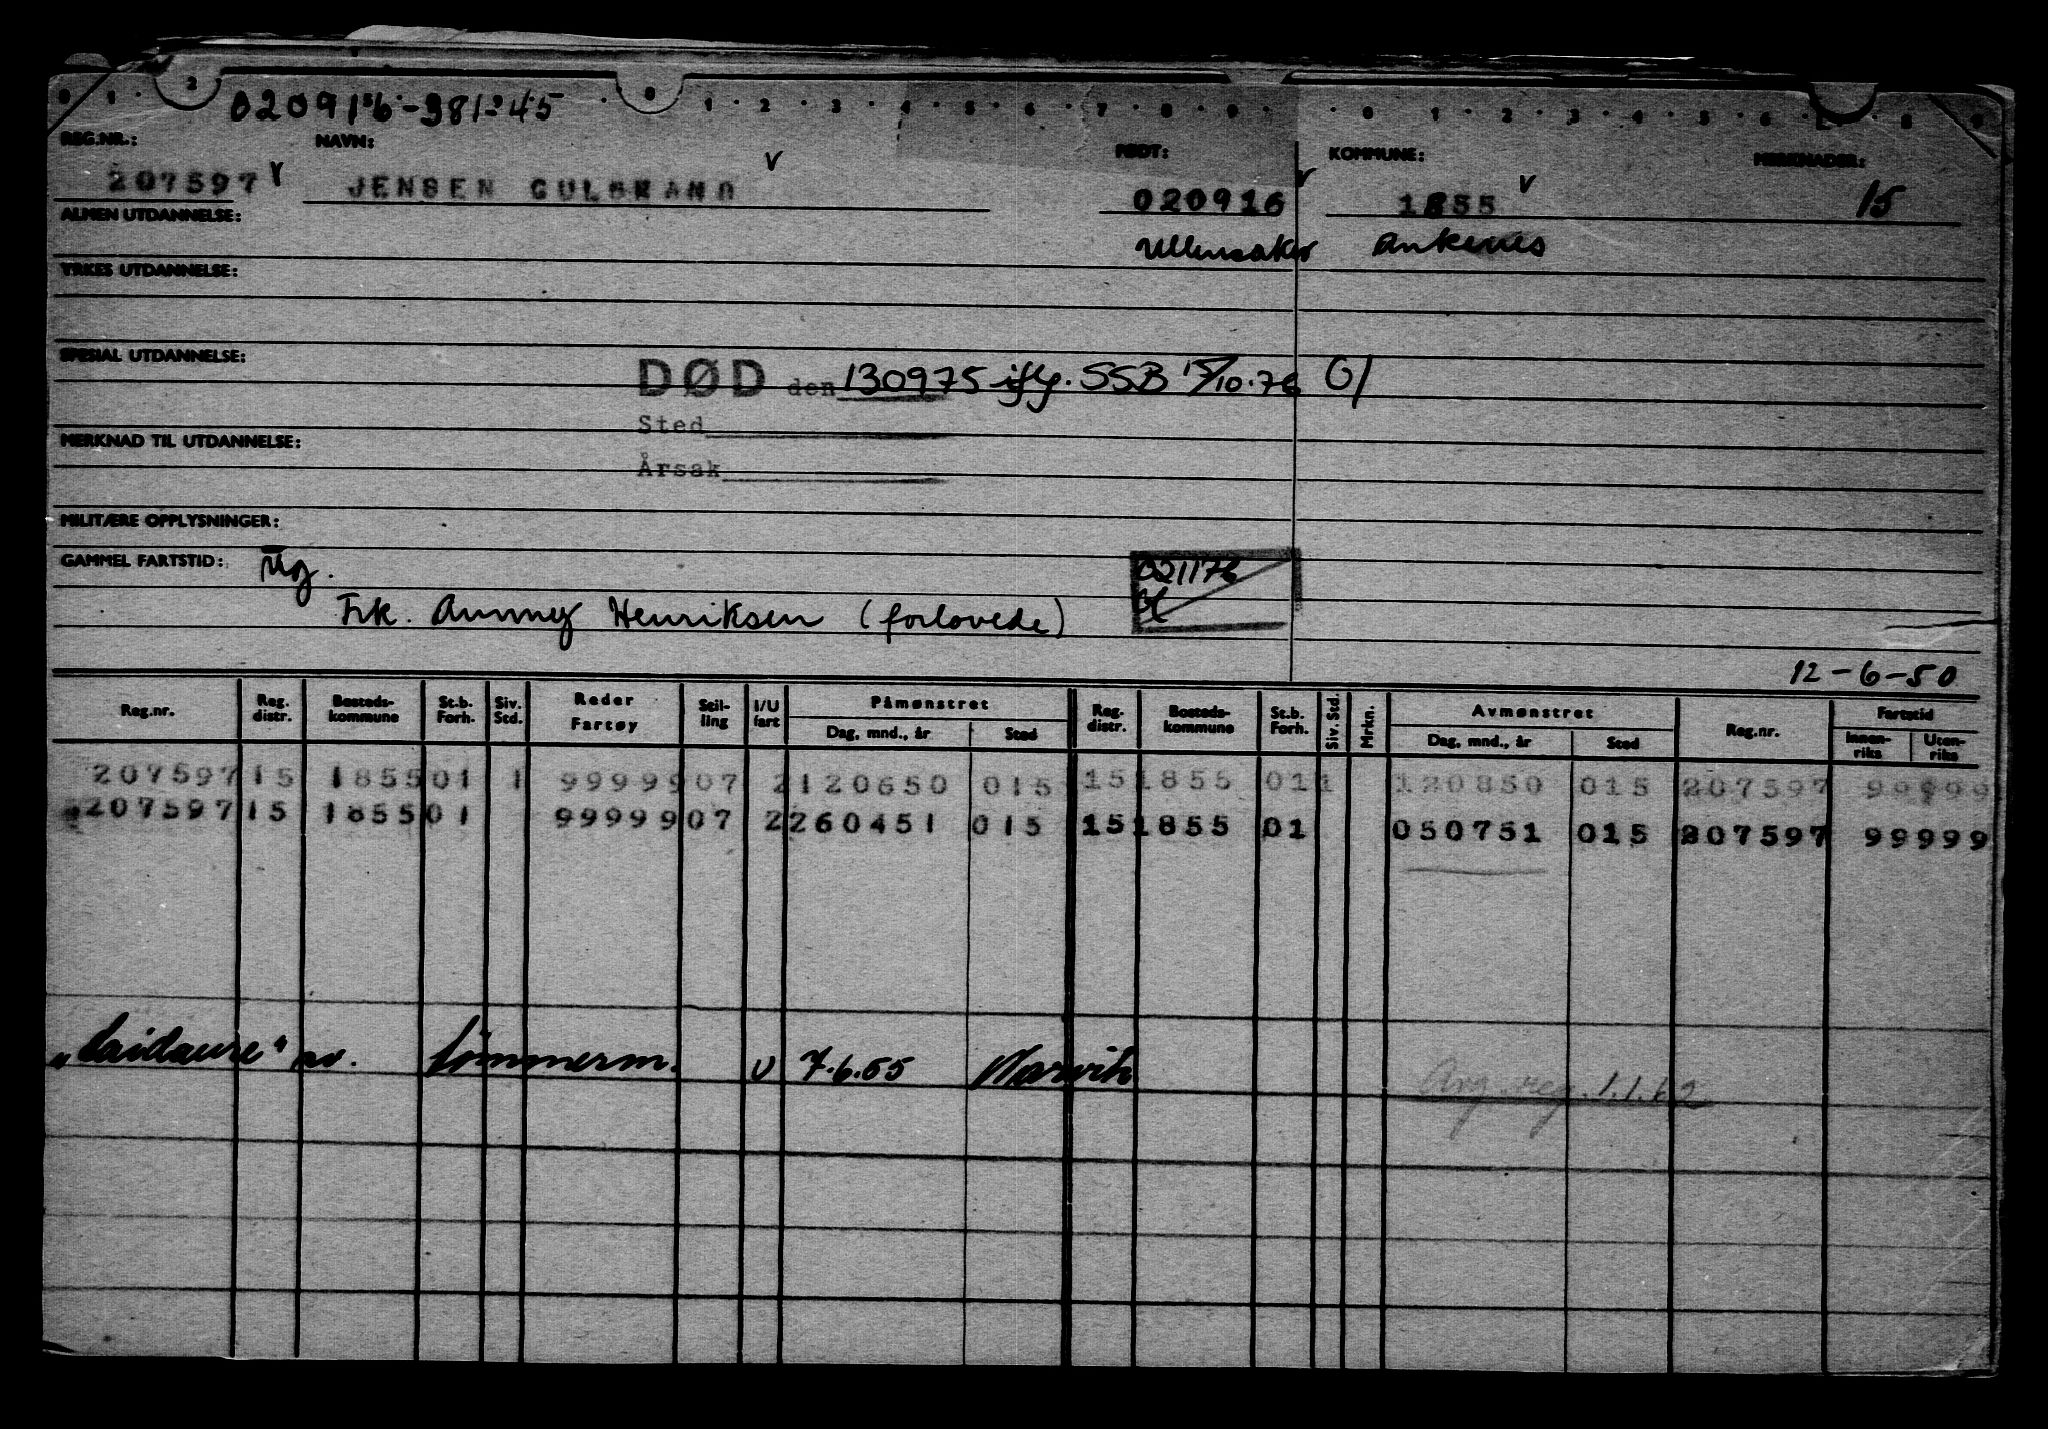 0 1 · 2 0 1 · 2 · 3 · 4 · 5 · 6 · 7 · 8 · 9 · 0 1 · 2 · 3 · 4 · 5 · 6 · · 8 9
020916-38145
REG.NR.: NAVN: FØDT: KOMMUNE: MERKNADER:
207597 v JENSEN GULBRAND v 020916 v 1855 v 15
ALMEN UTDANNELSE: Ullensaker Ankenes
YRKES UTDANNELSE:
SPESIAL UTDANNELSE:
DØD den 130975 iflg. SSB 15/10.76 G/
Sted
MERKNAD TIL UTDANNELSE:
Årsak
MILITÆRE OPPLYSNINGER:
GAMMEL FARTSTID: Ug. 021176
Frk. Anny Henriksen (forlovede)
12-6-50
Reg.nr. Reg. distr. Bosteds-kommune St.b. Forh. Siv. Std. Reder Fartøy Stil-ling I/U fart Påmønstret Dag, mnd., år Sted Reg. distr. Bosteds-kommune St.b. Forh. Siv. Std. Mrkn. Avmønstret Dag, mnd., år Sted Reg.nr. Fartstid Innen-riks Uten-riks
207597 15 1855 01 1 99999 07 2 120650 015 15 1855 01 1 120850 015 207597 99999
207597 15 1855 01 99999 07 2 260451 015 15 1855 01 050751 015 207597 99999
„Laidaure" av. tømmerm. U 7.6.55 Narvik
Avg. reg. 1.1.62